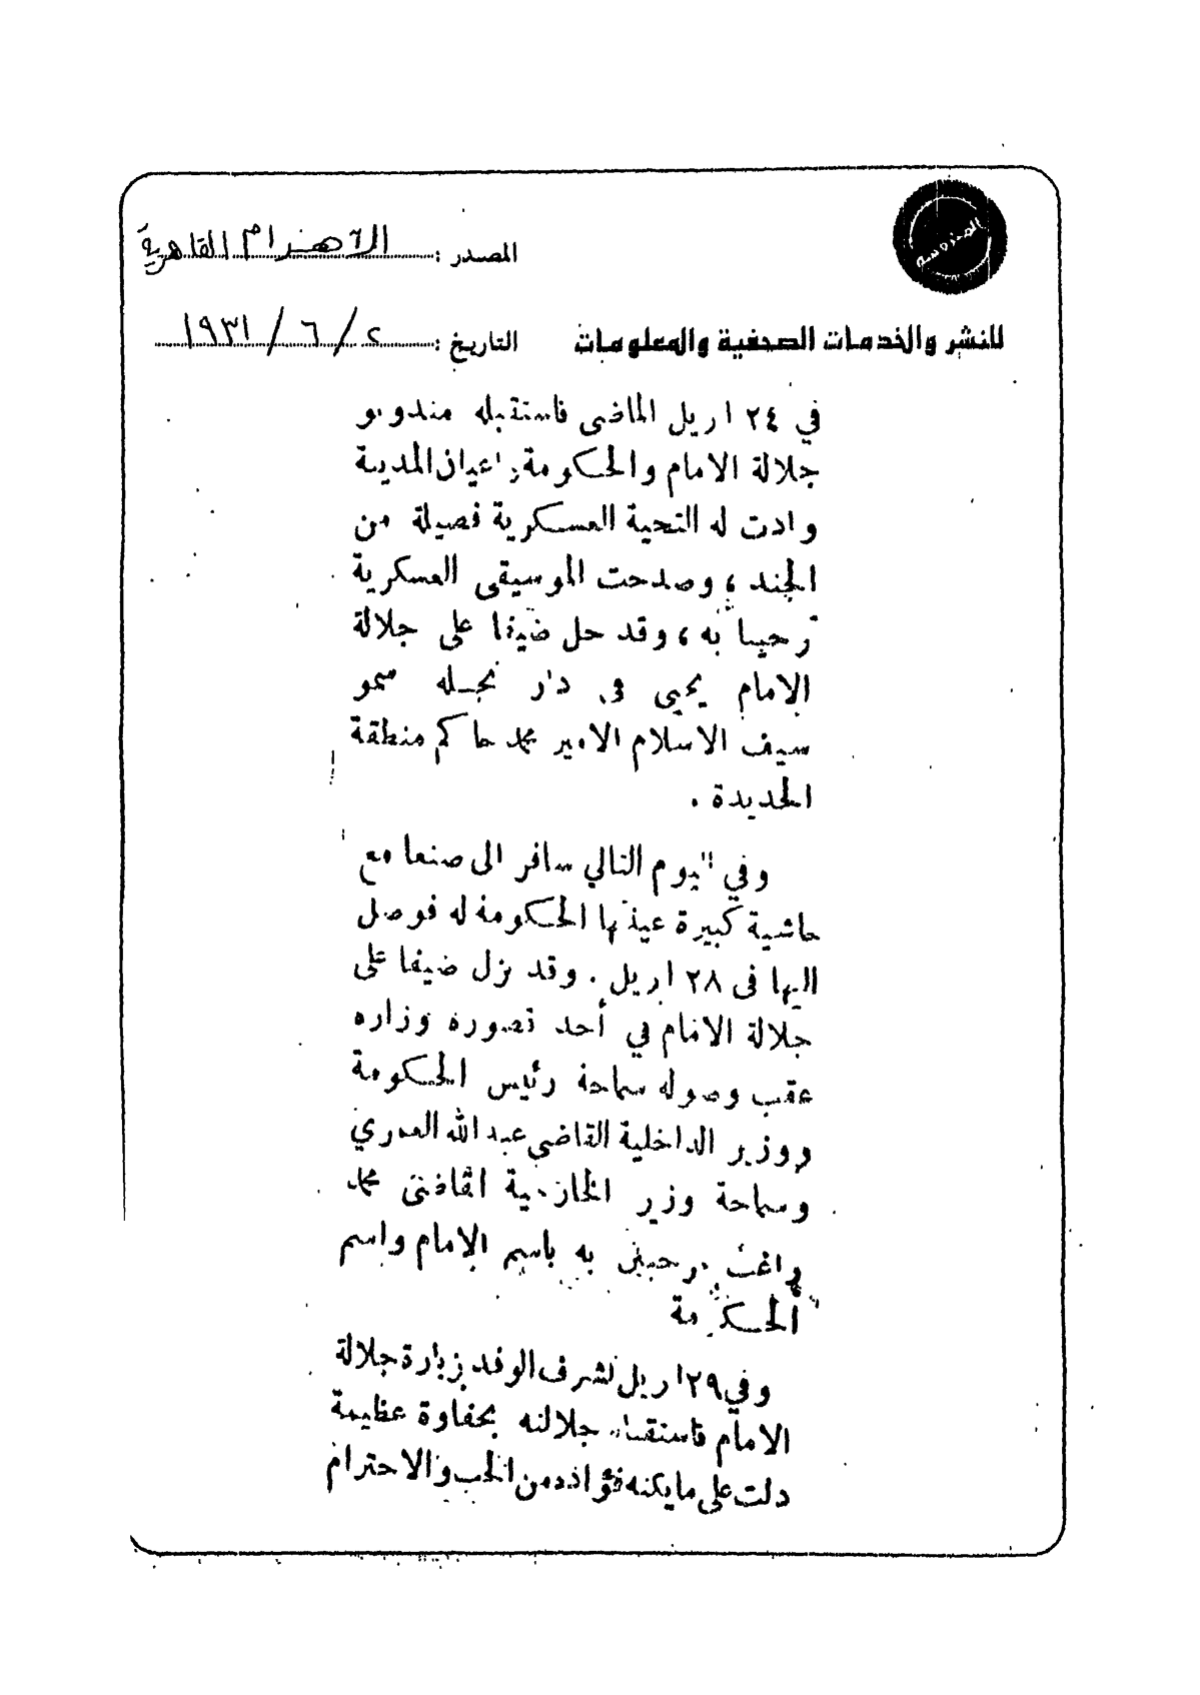 المحروسة
المصدر : الاهرام القاهرية
للنشر والخدمات الصحفية والمعلومات
التاريخ : ٢ / ٦ / ١٩٣١
في ٢٤ ابريل الماضى فاستقبله مندوبو
جلالة الامام والحكومة واعيان المدينة
وادت له التحية العسكرية فصيلة من
الجند ، وصدحت الموسيقى العسكرية
ترحيبا به ، وقد حل ضيفا على جلالة
الامام يحيى في دار نجله سمو
سيف الاسلام الامير محمد حاكم منطقة
الحديدة .
وفي اليوم التالي سافر الى صنعا مع
حاشية كبيرة عينتها الحكومة له فوصل
اليها فى ٢٨ ابريل . وقد نزل ضيفا على
جلالة الامام في أحد قصوره وزاره
عقب وصوله سماحة رئيس الحكومة
ووزير الداخلية القاضي عبد الله العمري
وسماحة وزير الخارجية القاضى محمد
راغب مرحبين به باسم الامام واسم
الحكومة
وفي ٢٩ ابريل تشرف الوفد بزيارة جلالة
الامام فاستقبله جلالته بحفاوة عظيمة
دلت على مايكنه فؤاده من الحب والاحترام